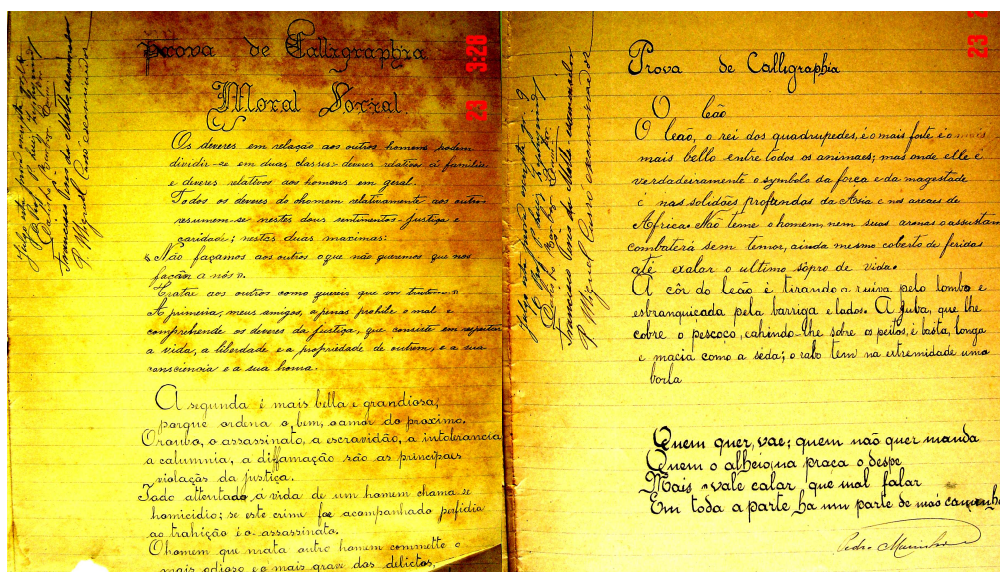 Prova de Calligraphia
3:28
23
Moral Social
Os deveres em relação aos outros homens podem
dividir-se em duas classes: deveres relativos á familia
e deveres relativos aos homens em geral.
Todos os deveres do homem relativamente aos outros
resumem-se nestes dous sentimentos - Justiça e
caridade; nestas duas maximas:
«Não façamos aos outros o que não queremos que nos
façam a nós».
Tratar aos outros como quereis que vos tratem»
A primeira, meus amigos, apenas prohibe o mal e
comprehende os deveres da justiça, que consiste em respeitar
a vida, a liberdade e a propriedade de outrem, e a sua
consciencia e a sua honra.
A segunda é mais bella e grandiosa,
porque ordena o bem, o amor do proximo.
O roubo, o assassinato, a escravidão, a intolerancia
a calumnia, a diffamação são as principaes
violações da justiça.
Todo attentado á vida de um homem chama-se
homicidio; se este crime foe acompanhado perfidia
ao trahição é o assassinato.
O homem que mata outro homem commette o
mais odioso e o mais grave dos delictos.
Julgo esta prova
Francisco de Mello examinador
P. Miguel examinador
23
Prova de Calligraphia
O leão
O leão, o rei dos quadrupedes, é o mais forte e o mais
mais bello entre todos os animaes; mas onde elle é
verdadeiramente o symbolo da força e da magestade
é nas solidões profundas da Asia e nos areaes de
Africa. Não teme o homem, nem suas armas o assustam
combaterá sem temor, ainda mesmo coberto de feridas
até exalar o ultimo sôpro de vida.
A côr do leão é tirando a ruiva pelo lombo e
esbranquicada pela barriga e lados. A Juba, que lhe
cobre o pescoço, cahindo-lhe sobre os peitos, é basta, longa
e macia como a seda; o rabo tem na extremidade uma
borla
Quem quer, vae; quem não quer manda
Quem o alheio, na praca o despe
Mais vale calar que mal falar
Em toda a parte ha um parte de máo caminho
Pedro Marinho
Julgo esta prova
Francisco de Mello examinador
P. Miguel examinador